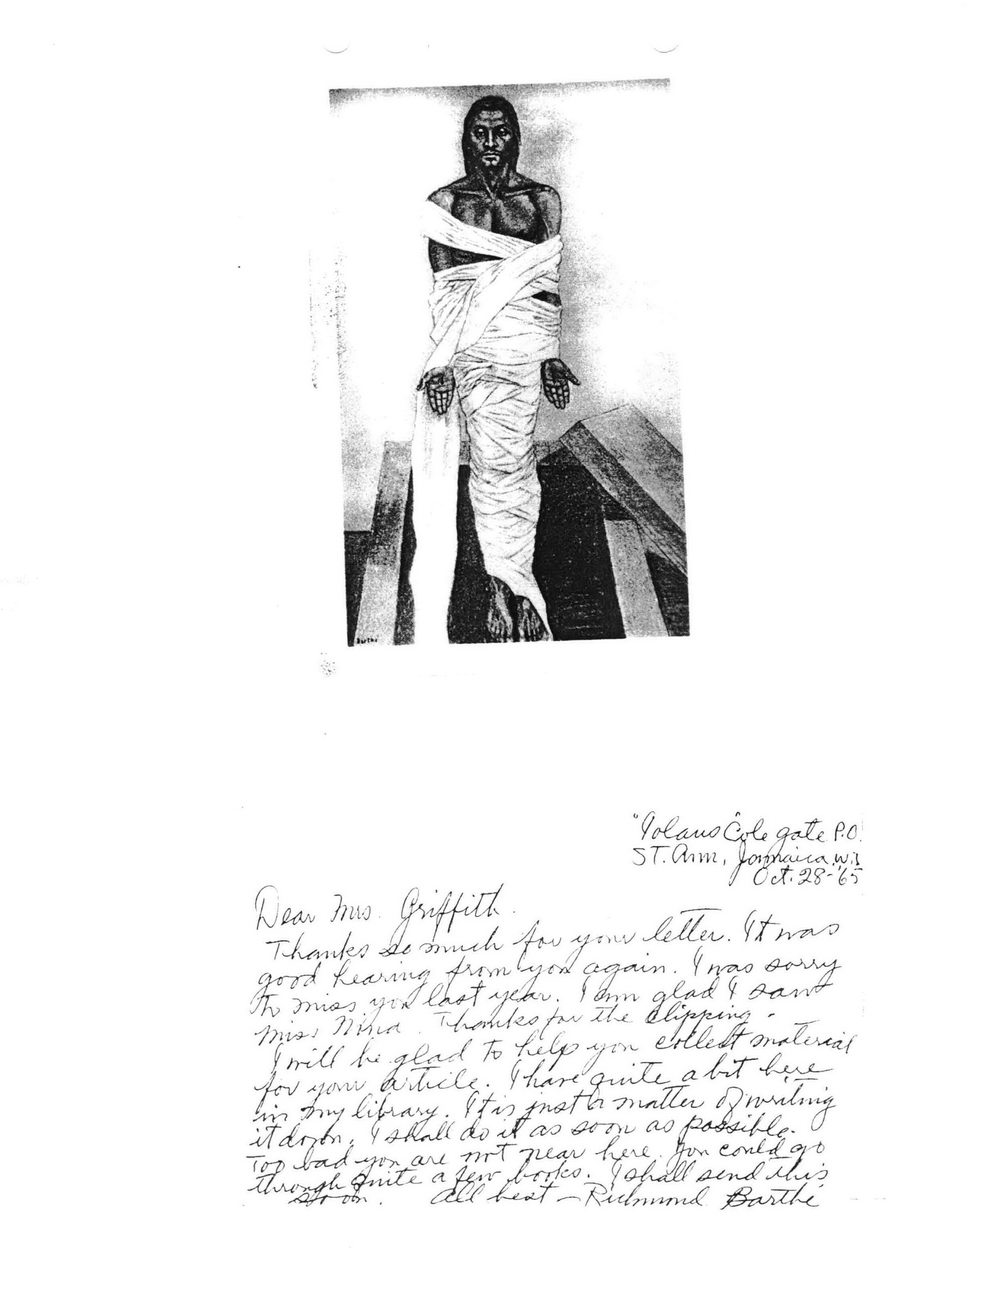 Barthé
"Iolaus" Colegate P.O.
ST. Ann, Jamaica, W.I.
Oct. 28-'65
Dear Mrs. Griffith.
Thanks so much for your letter. It was
good hearing from you again. I was sorry
to miss you last year. I am glad I saw
Miss Nina. Thanks for the clipping.
I will be glad to help you collect material
for your article. I have quite a bit here
in my library. It is just a matter of writing
it down. I shall do it as soon as possible.
Too bad you are not near here. You could go
through quite a few books. I shall send this
soon. All best — Richmond Barthé